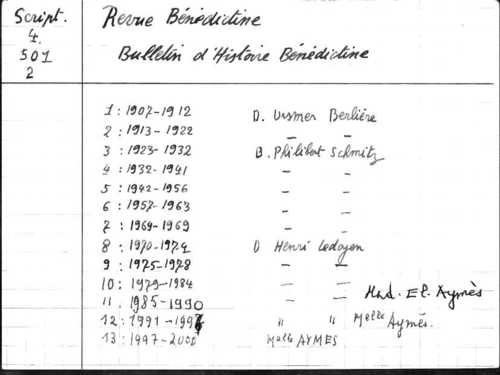 Script.
4.
501
2
Revue Bénédictine
Bulletin d'Histoire Bénédictine
1 : 1907-1912 D. Ursmer Berlière
2 : 1913-1922 — —
3 : 1923-1932 B. Philibert Schmitz
4 : 1932-1941 — —
5 : 1942-1956 — —
6 : 1957-1963 — —
7 : 1964-1969 — —
8 : 1970-1974 D Henri Ledoyen
9 : 1975-1978 — —
10 : 1979-1984 — —
11 : 1985-1990 — — Mad. El. Aymès
12 : 1991-1996 " " Melle Aymès.
13 : 1997-2001 Melle AYMES